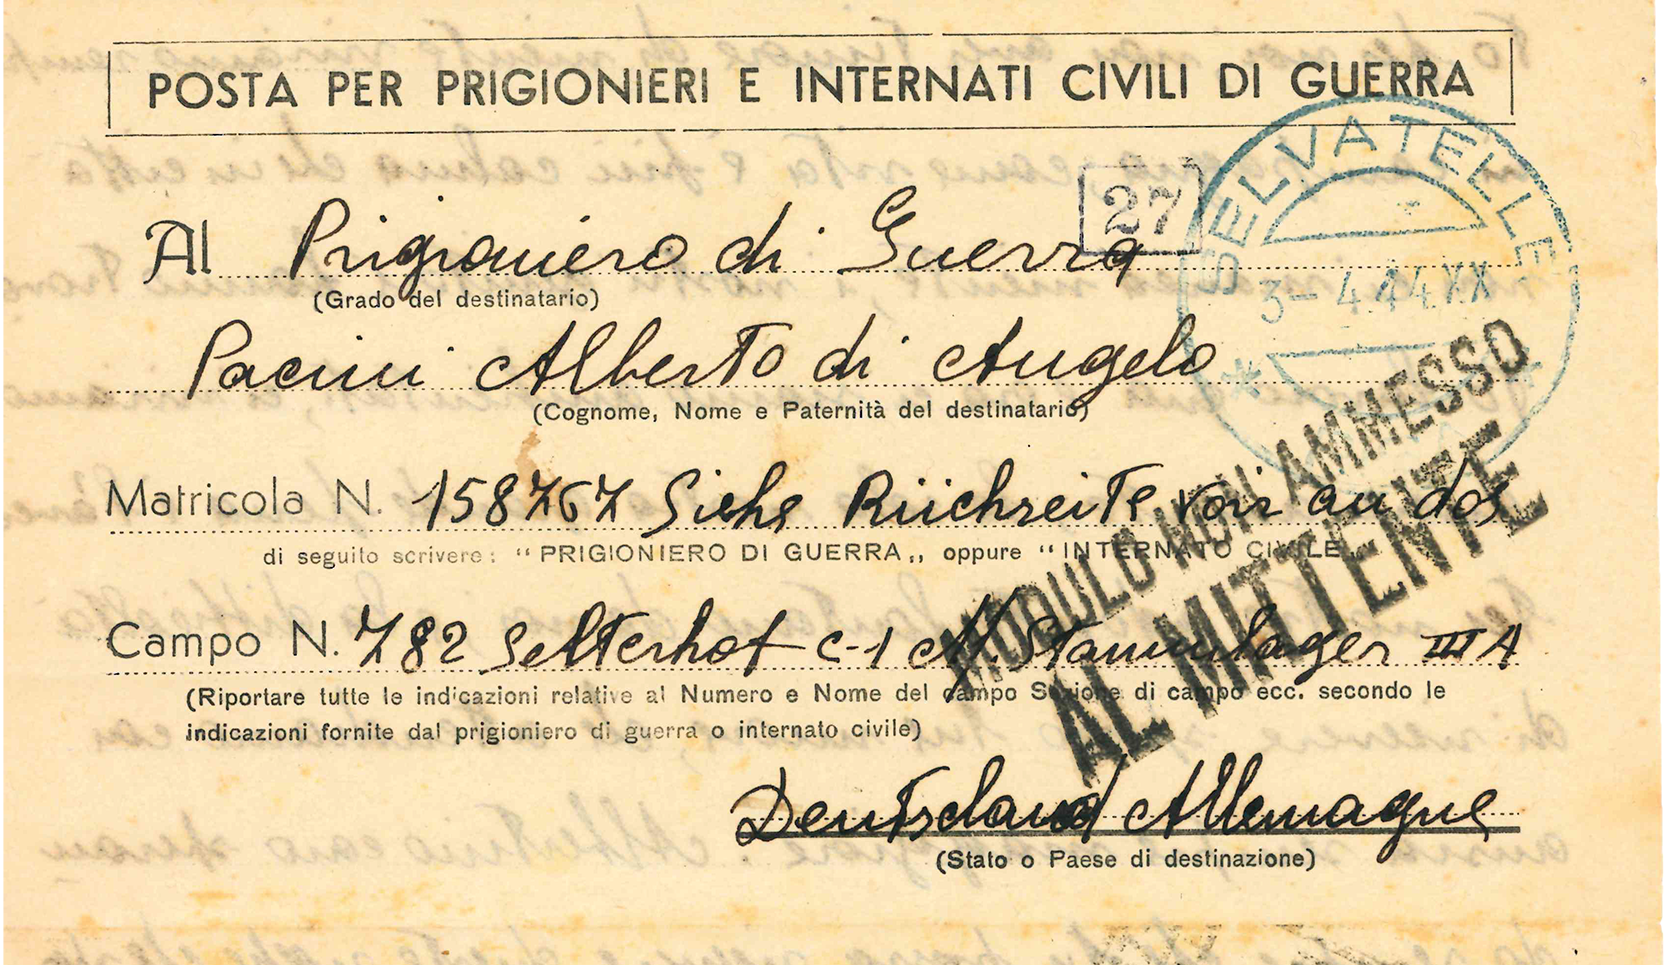 POSTA PER PRIGIONIERI E INTERNATI CIVILI DI GUERRA
SELVATELLE
27
3-4 44 XX
Al Prigioniero di Guerra
(Grado del destinatario)
Pacini Alberto di Angelo
(Cognome, Nome e Paternità del destinatario)
MODULO NON AMMESSO
AL MITTENTE
Matricola N. 158767 Siehe Rüchseite Voir au dos
di seguito scrivere: "PRIGIONIERO DI GUERRA,, oppure "INTERNATO CIVILE
Campo N. 782 Selterhof C-1 M. Stammlager III A
(Riportare tutte le indicazioni relative al Numero e Nome del campo Sezione di campo ecc. secondo le
indicazioni fornite dal prigioniero di guerra o internato civile)
Deutscland Allemagne
(Stato o Paese di destinazione)